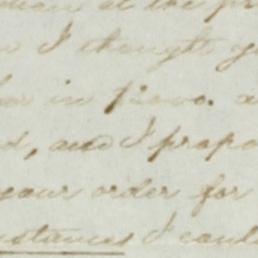 at the pr
I thought y
for in Provo. a
d, and I propo
your order for
nstances I could